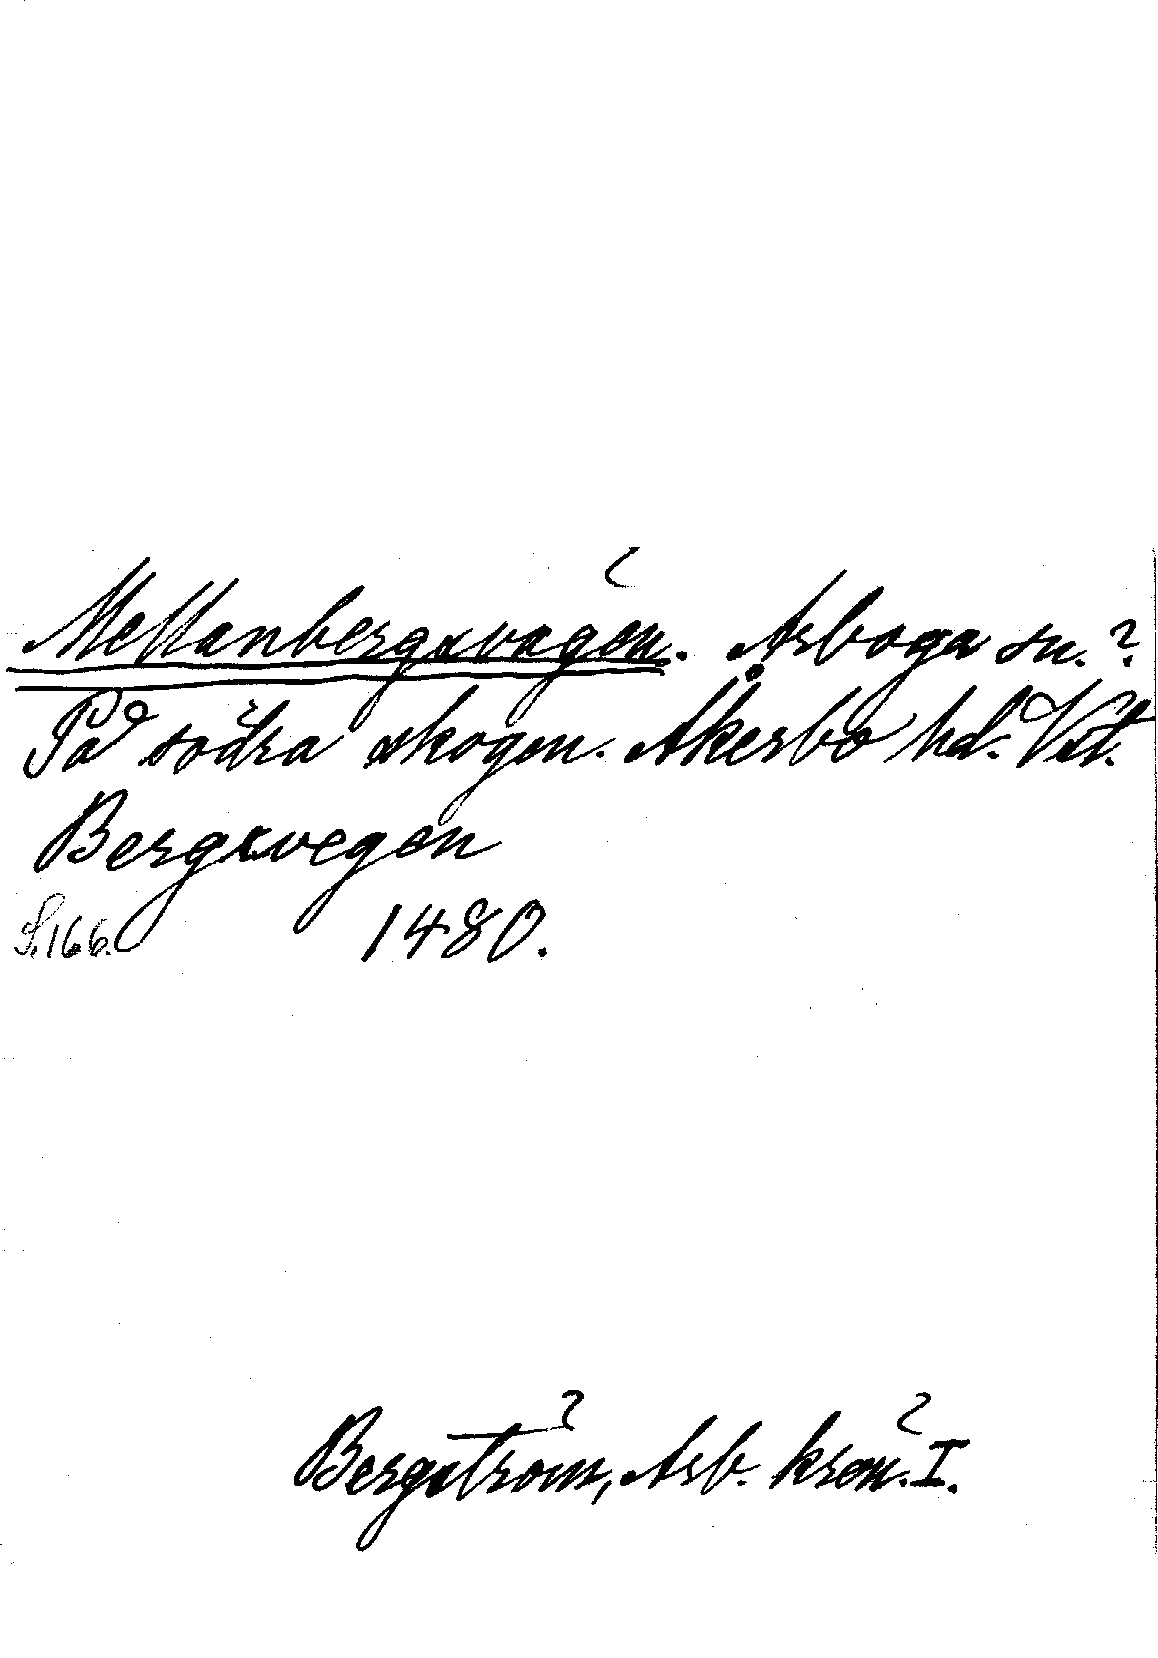 Mellanbergsvägen. Arboga sn.?
På södra skogen. Åkerbo hd. Vstl.
Bergsvegen
S. 166. 1480.
Bergström, Arb. krön. I.